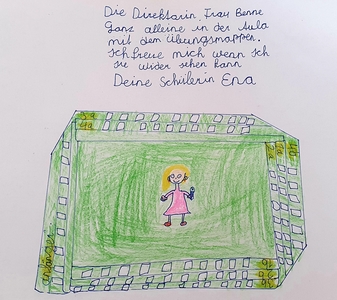 Die Direktorin, Frau Benne
Ganz alleine in der Aula
mit dem Übungsmappen.
Ich freue mich wenn ich
sie wider sehen kann
Deine Schülerin Ena
4a
1a
2a
4b
3b